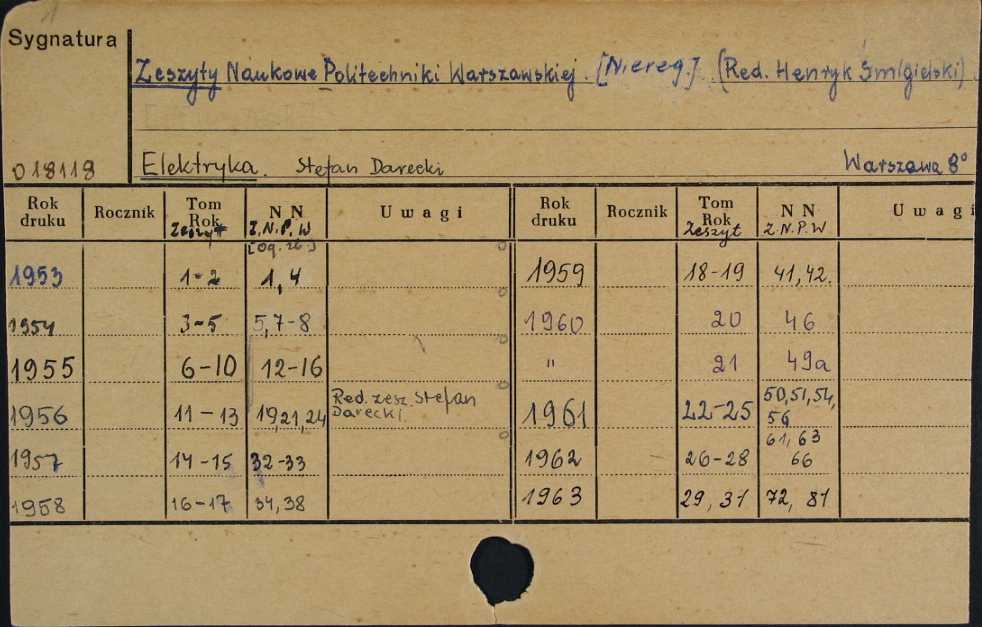 1
Sygnatura
Zeszyty Naukowe Politechniki Warszawskiej. [Niereg.] (Red. Henryk Śmigielski).
018118 Elektryka. Stefan Darecki Warszawa 8°
Rok druku Rocznik Tom Rok Zeszyt N N Z.N.P.W Uwagi Rok druku Rocznik Tom Rok Zeszyt N N Z.N.P.W Uwagi
1953 1-2 1,4 1959 18-19 41,42.
1954 3-5 5,7-8 1960 20 46
1955 6-10 12-16 " 21 49a
1956 11-13 19,21,24 Red. zesz. Stefan Darecki. 1961 22-25 50,51,54, 56
1957 14-15 32-33 1962 26-28 61, 63 66
1958 16-17 34,38 1963 29, 31 72, 81